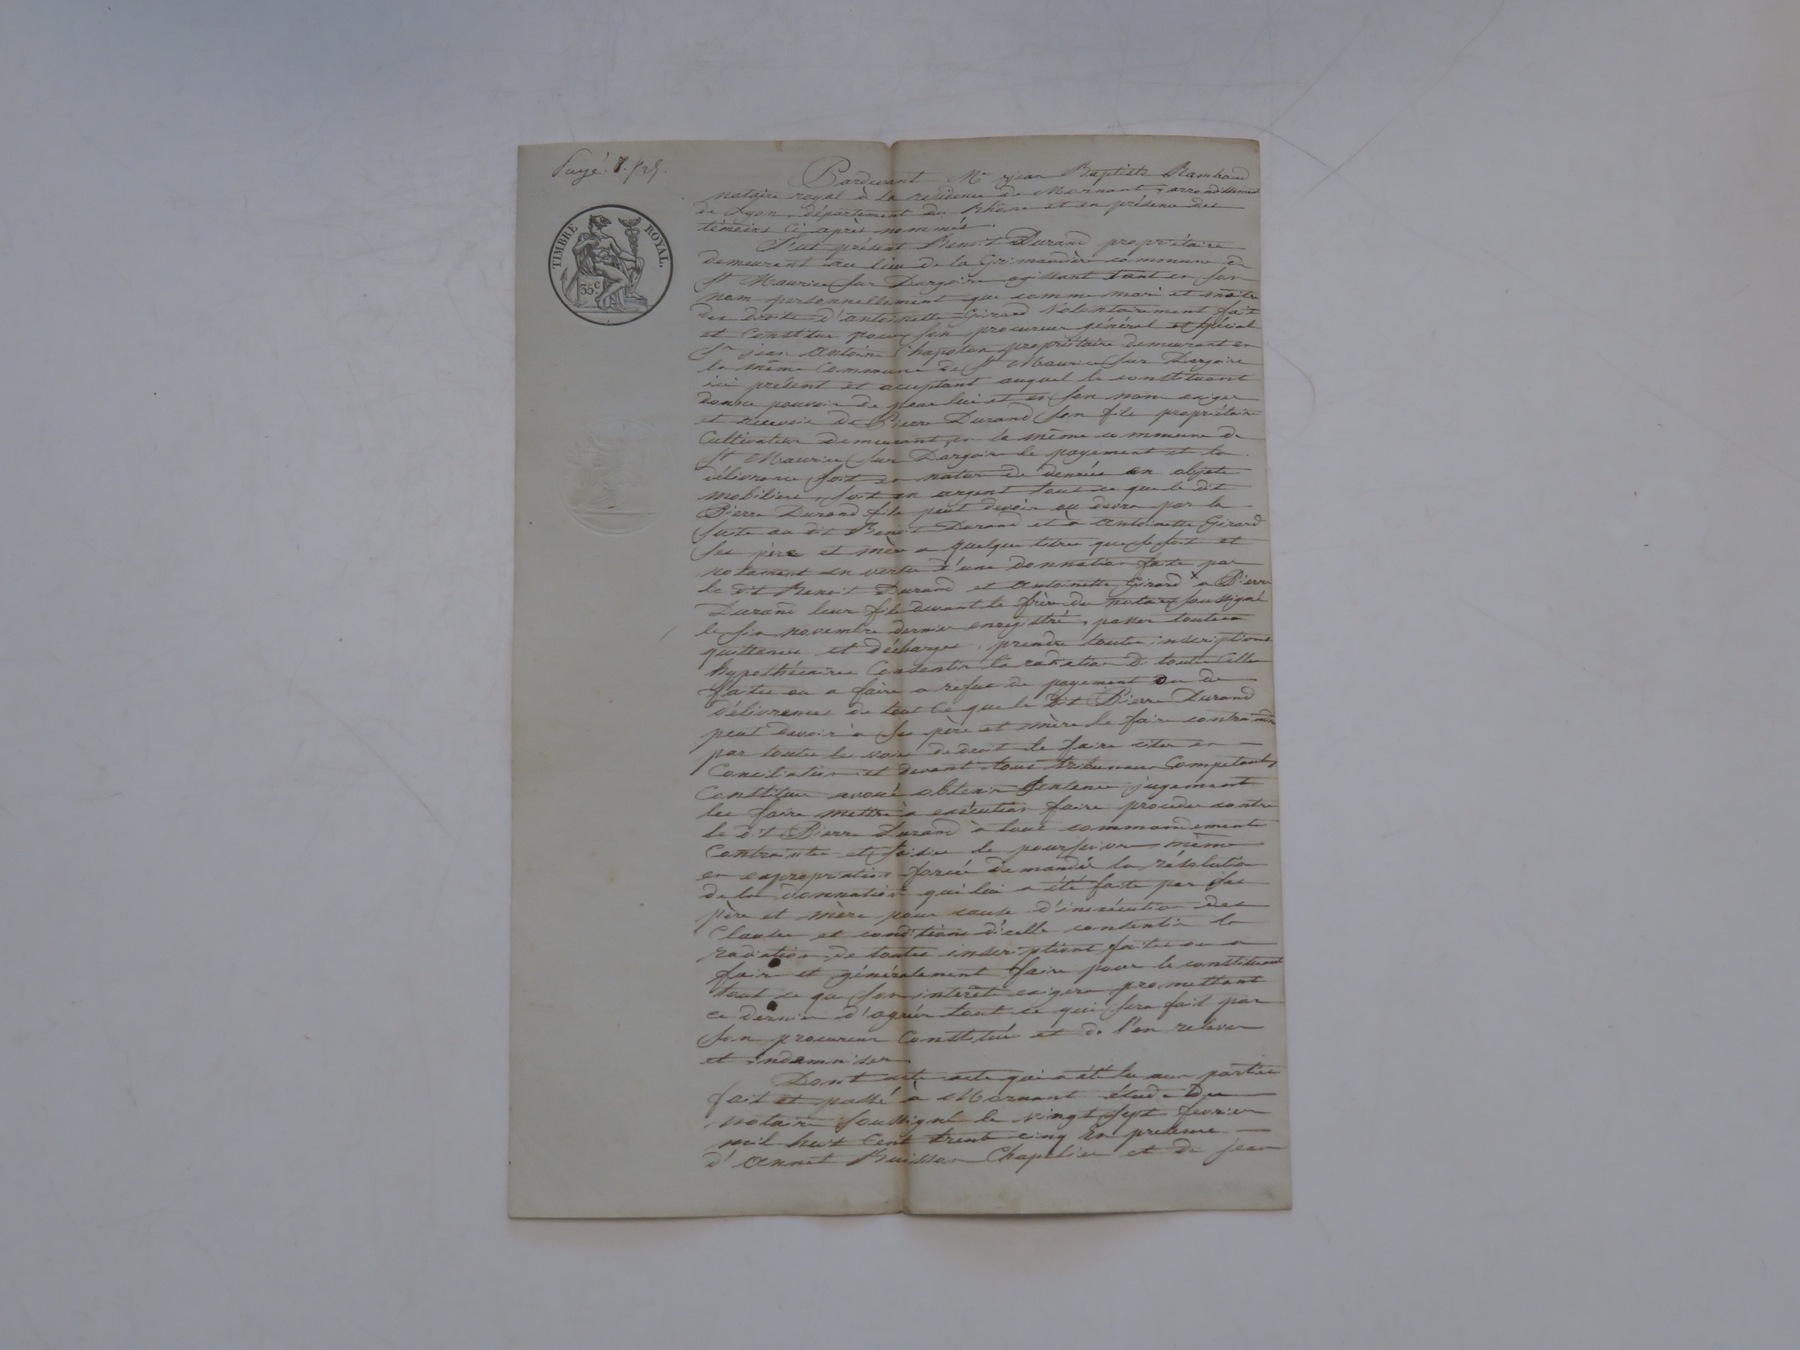 Payé
TIMBRE ROYAL.
35c
Pardevant Me jean Baptiste Rambaud
notaire royal à la residence de Mornant, arrondissement
de Lyon, département du Rhône et en présence des
témoins ci après nommés.
Fut présent Benoit Durand propriétaire
demeurant au lieu de la Grimaudière commune de
St Maurice sur Dargoire agissant tant en son
nom personnellement que comme mari et maitre
des droits d'antoinette Girard Volontairement fait
et Constitue pour son procureur général et spécial
Sr jean Antoine Chapotun propriétaire demeurant en
la même Commune de St Maurice sur Dargoire
ici présent et acceptant auquel le constituant
donne pouvoir de pour lui et en son nom exiger
et recevoir de Pierre Durand son fils propriétaire
Cultivateur demeurant en la même commune de
St Maurice sur Dargoire le payement et la
délivrance soit en nature de denrées en objets
mobiliers, soit en argent tout ce que le dit
Pierre Durand fils peut devoir ou devra par la
suite au dit Benoit Durand et à antoinette Girard
ses père et mère a quelque titre que ce soit et
notament en vertu d'une donnation faite par
le dit Benoit Durand et antoinette Girard x a Pierre
Durand leur fils devant le frère du notaire soussigné
le six novembre dernier enregistré, passer toutes
quittances et décharges, prendre toute inscriptions
hypothécaires Consentir la radiation de toutes Celles
faites ou a faire a refus de payement ou de
délivrances de tout Ce que le dit Pierre Durand
peut devoir à ses père et mère le faire contraindre
par toutes les voies de droit le faire citer en
Conciliation et devant tous tribunaux Competants
Constituer avoué obtenir Sentence jugement
les faire mettre à exécution faire proceder contre
le dit Pierre Durand à tous commandements
Contraintes et saisies le poursuivre même
en expropriation forcée demander la résolution
de la donnation qui lui a été faite par ses
père et mère pour cause d'inexécution des
Clauses et conditions d'icelle consentir la
radiation de toutes inscriptions faites ou a
faire et généralement faire pour le constituant
tout ce que son interêt exigera promettant
ce dernier d'agréer tout ce qui sera fait par
son procureur Constitué et de l'en relever
et indemniser.
Dont acte qui a été lu aux parties
fait et passé à Mornant étude du
notaire soussigné le vingt sept fevrier
mil huit Cent trente cinq En presence
d'Annet Buisson Chapelier et de jean